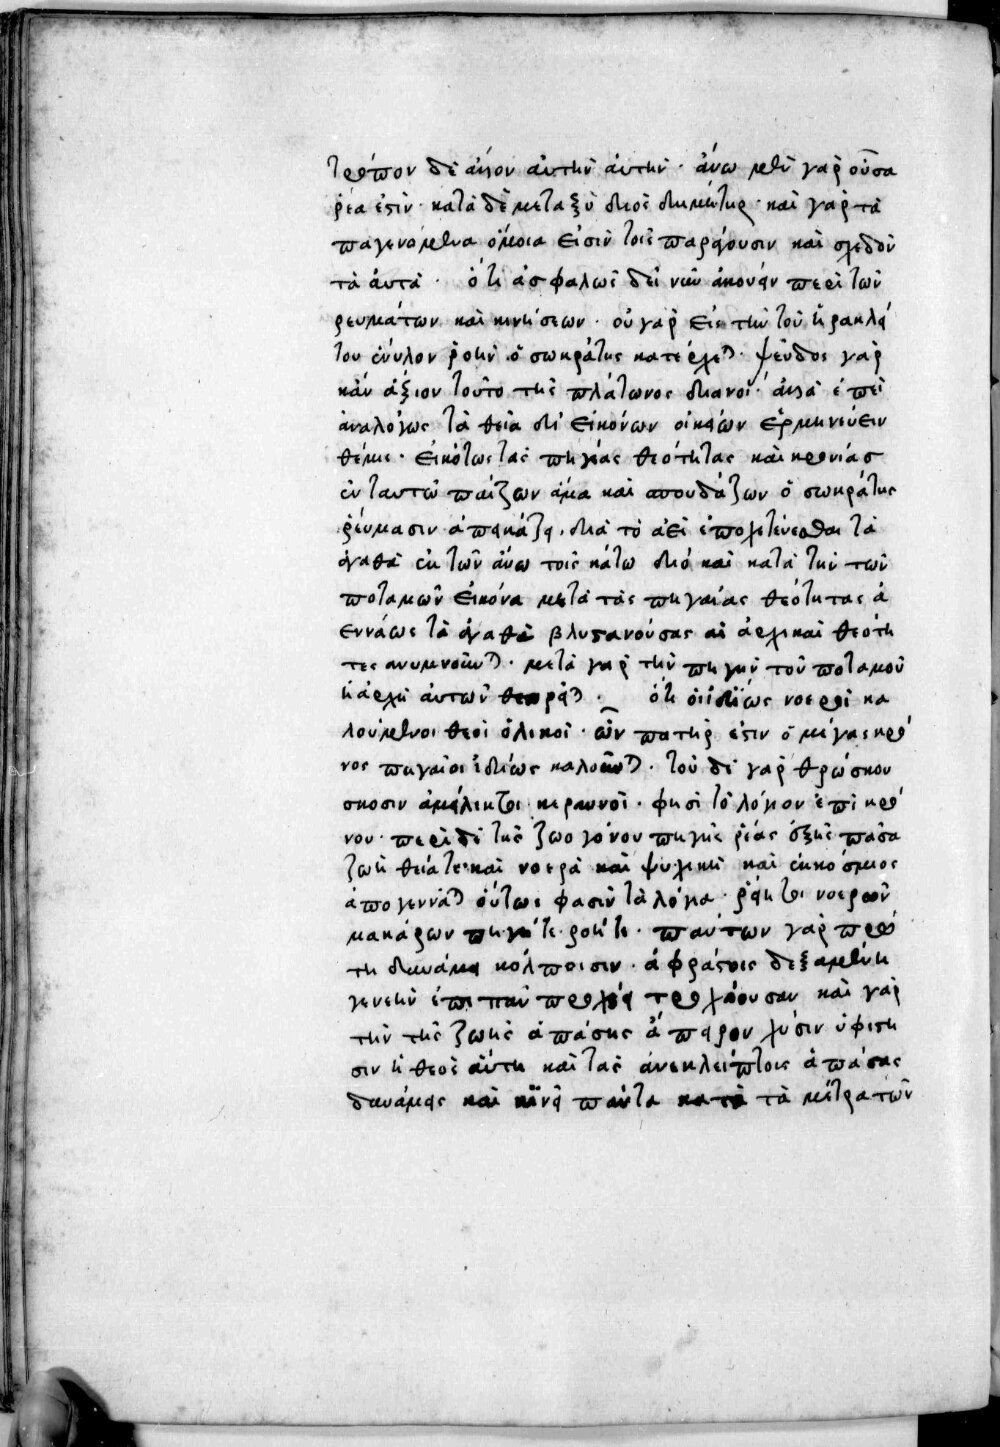 τρόπον δὲ ἄλλον αὐτὴν αὐτήν· ἄνω μὲν γὰρ οὖσα
ῥέα ἐστὶν· κατὰ δὲ μεταξὺ διος δημήτηρ· καὶ γὰρ τὰ
παγενομενα ὅμοια εἰσὶν τοῖς παράγουσιν καὶ σχεδὸν
τὰ αὐτά· ὅτι ἀσφαλῶς δεῖ νῦν ἀκούειν περὶ τῶν
ρευμάτων καὶ κινήσεων· οὐ γὰρ εἰς τὴν τοῦ ἡρακλεί
του ἔνυλον ῥοὴν ὁ σωκράτης κατέρχεται· ψεῦδος γὰρ
κἀν ἄξιον τοῦτο τῆς πλάτωνος διανοί· ἀλλὰ ἐπεὶ
ἀναλόγως τὰ θεῖα δι' εἰκόνων οἰκείων ἑρμηνεύειν
θέμις· εἰκότως τὰς πηγαίας θεότητας καὶ κρονίας
ἐν ταυτῶ παίζων ἅμα καὶ σπουδάζων ὁ σωκράτης
ῥεύμασιν ἀπεικάζει· διὰ τὸ ἀεὶ ἐποχετεύεσθαι τὰ
ἀγαθὰ ἐκ τῶν ἄνω τοῖς κάτω διὸ καὶ κατὰ τὴν τῶν
ποταμῶν εἰκόνα μετὰ τὰς πηγαίας θεότητας ἀ
εννάως τὰ ἀγαθὰ βλυστανούσας αἱ ἀρχικαὶ θεότη
τες ανυμνοῦνται· μετὰ γὰρ τὴν πηγὴν τοῦ ποταμοῦ
ἡ ἀρχὴ αὐτῶν θεωρεῖται· ὅτι οἱ ἰδίως νοεροὶ κα
λούμενοι θεοὶ ὁλικοὶ· ὧν πατήρ ἐστιν ὁ μέγας κρό
νος πηγαῖοι ἰδίως καλοῦνται· τοῦ δὲ γὰρ θρώσκου
σκοσιν ἀμείλικτοι κεραυνοὶ· φησὶ τὸ λόγιον ἐπὶ κρό
νου· περὶ δὲ τῆς ζωογόνου πηγῆς ῥέας ἐξ ἧς πᾶσα
ζωὴ θεία τε καὶ νοερὰ καὶ ψυχικὴ καὶ ἐγκόσμιος
ἀπογεννᾶται οὕτως φασὶν τὰ λόγια· ῥείη τοι νοερῶν
μακάρων πηγή τε ροή τε· πάντων γὰρ πρώ
τη δυνάμει κόλποισιν· ἀφράστοις δεξαμένη
γενεὴν ἐπι πᾶν προχέει τροχάουσαν καὶ γὰρ
τὴν τῆς ζωῆς ἁπάσης ἄπειρον χύσιν ὑφίστη
σιν ἡ θεὸς αὕτη καὶ τὰς ἀνεκλείπτους ἁπάσας
δυνάμεις καὶ κινεῖ πάντα κατὰ τὰ μέτρα τῶν